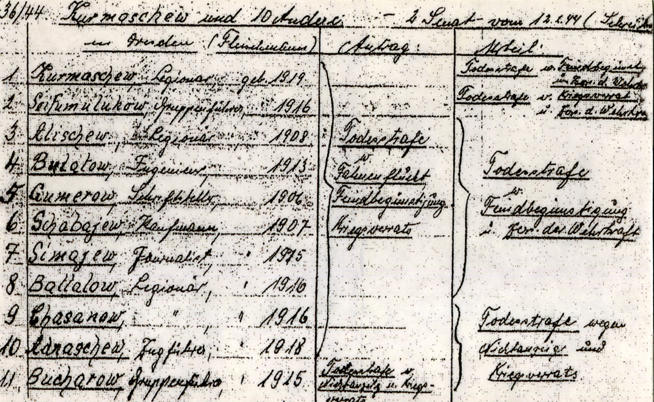 36/44 Kurmaschew und 10 Andere - 2 Senat - vom 12.2.44 (
in Dresden ( Antrag: Urteil:
1 Kurmaschew, Legionär, geb. 1919 Todesstrafe w. Feindbegünst.
u. Zer. d. Wehrkr.
2 Seifumulukow, Gruppenführer, 1916 Todesstrafe w. Kriegsverrat
u. Zer. d. Wehrkr.
3 Alischew, Legionär 1908 Todesstrafe
4 Bulatow, Ingenieur, 1913 w. Todesstrafe
Fahnenflucht w.
5 Gumerow, Schriftsteller, 1906 Feindbegünstigung Feindbegünstigung
6 Schabajew, Kaufmann, " 1907 Kriegsverrats u. Zer. der Wehrkraft
7 Simajew, Journalist, " 1915
8 Battalow, Legionär, " 1916
9 Chasanow, " " 1916 Todesstrafe wegen
10 Adnaschew, Zugführer, " 1918 und
11 Bucharow, Gruppenführer, " 1915 Todesstrafe w. Kriegsverrats
u. Kriegs-
verrats